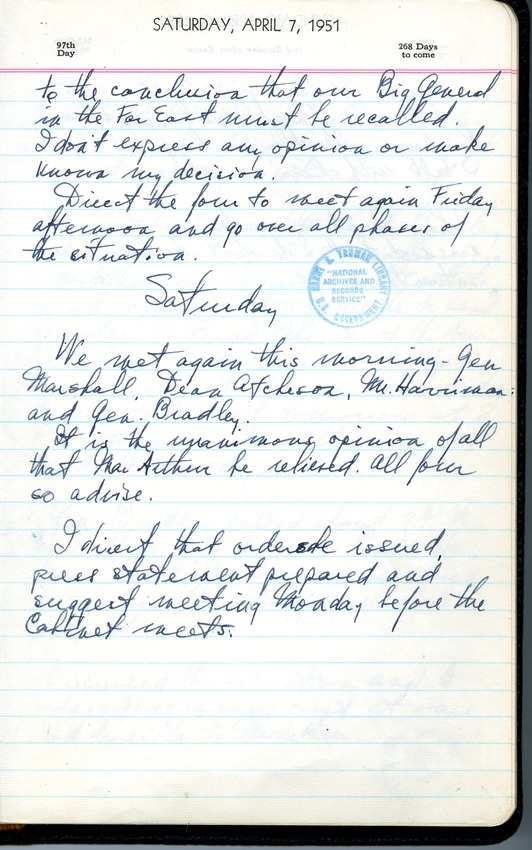 SATURDAY, APRIL 7, 1951
97th
Day
268 Days
to come
to the conclusion that our Big General
in the Far East must be recalled.
I don't express any opinion or make
known my decision.
Direct the four to meet again Friday
afternoon and go over all phases of
the situation.
HARRY S. TRUMAN LIBRARY
"NATIONAL
ARCHIVES AND
RECORDS
SERVICE"
U.S. GOVERNMENT
Saturday
We met again this morning - Gen
Marshall, Dean Atcheson, Mr. Harriman
and Gen. Bradley.
It is the unanimous opinion of all
that MacArthur be relieved. All four
so advise.
I direct that orders be issued,
press statement prepared and
suggest meeting Monday before the
Cabinet meets.